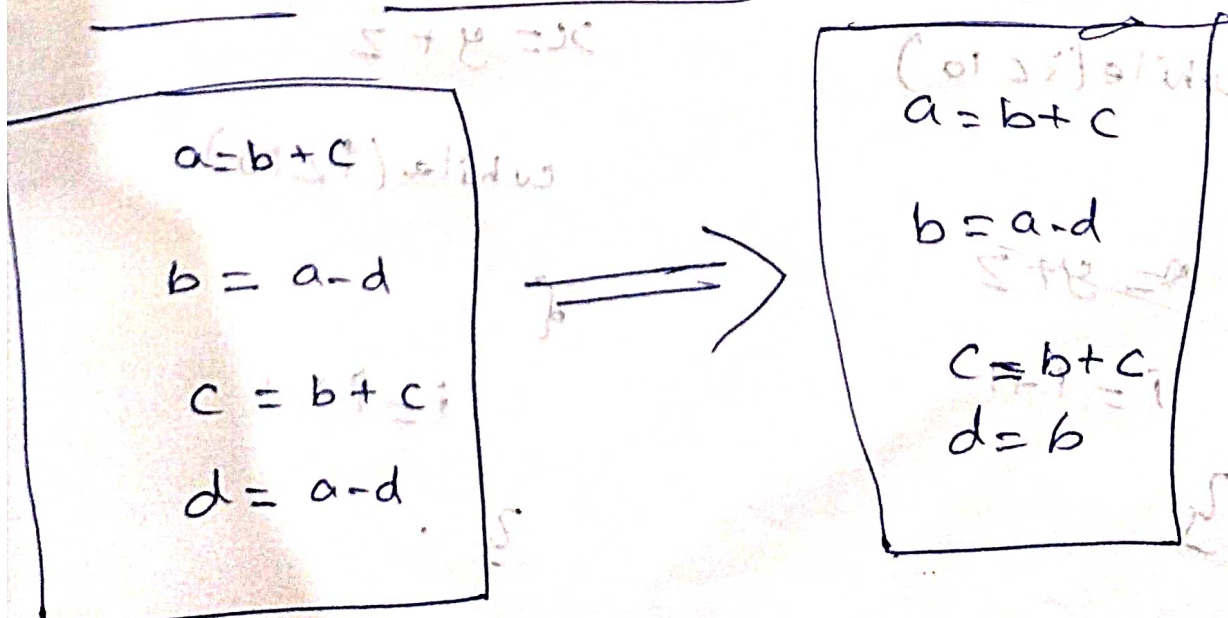 a=b+c
b = a-d
c = b+c
d = a-d
a=b+c
b=a-d
c=b+c
d=b